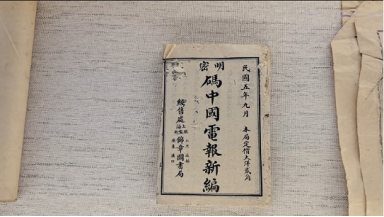 民國五年九月　本局定價大洋貳角
明密
碼中國電報新編
總售處
錦章圖書局